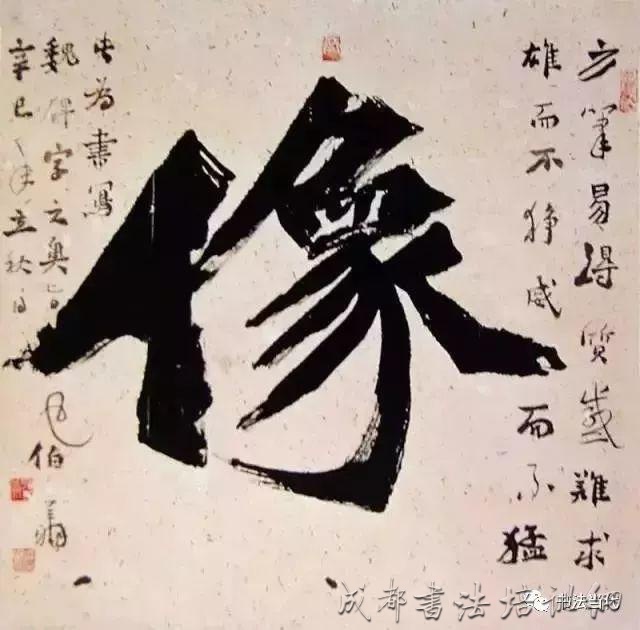 方筆易得質感難求
雄而不狰威而不猛
像
為書寫
魏碑字之奥旨
辛巳年立秋日
伯
成都書法培训
书法当